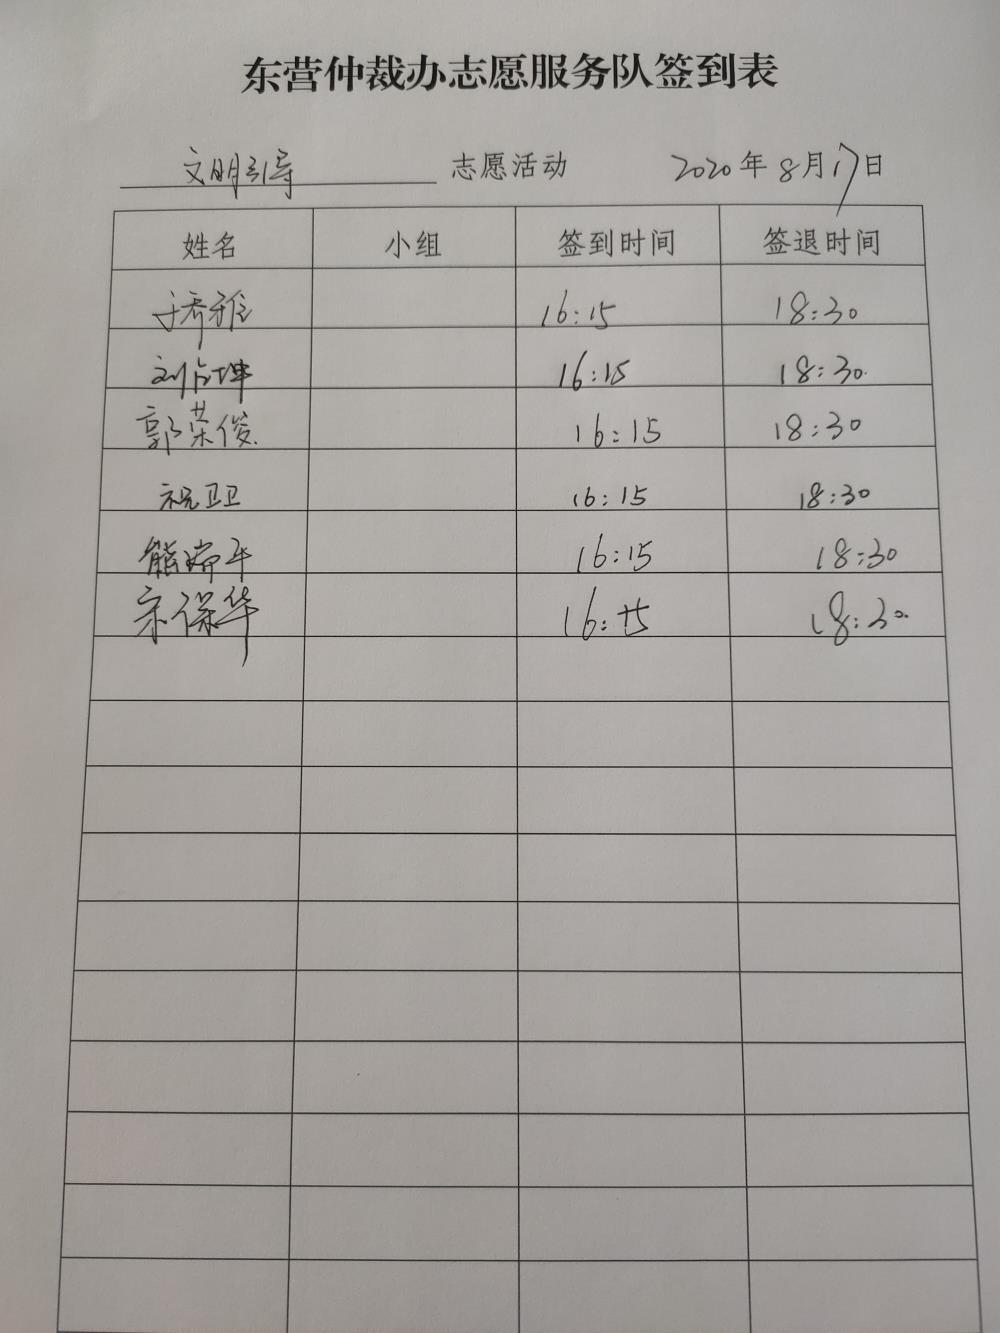 东营仲裁办志愿服务队签到表
文明引导 志愿活动 2020年8月17日
姓名 小组 签到时间 签退时间
于乔雅 16:15 18:30
刘 坤 16:15 18:30
郭荣俊 16:15 18:30
祝卫卫 16:15 18:30
熊瑞平 16:15 18:30
宋保华 16:15 18:30